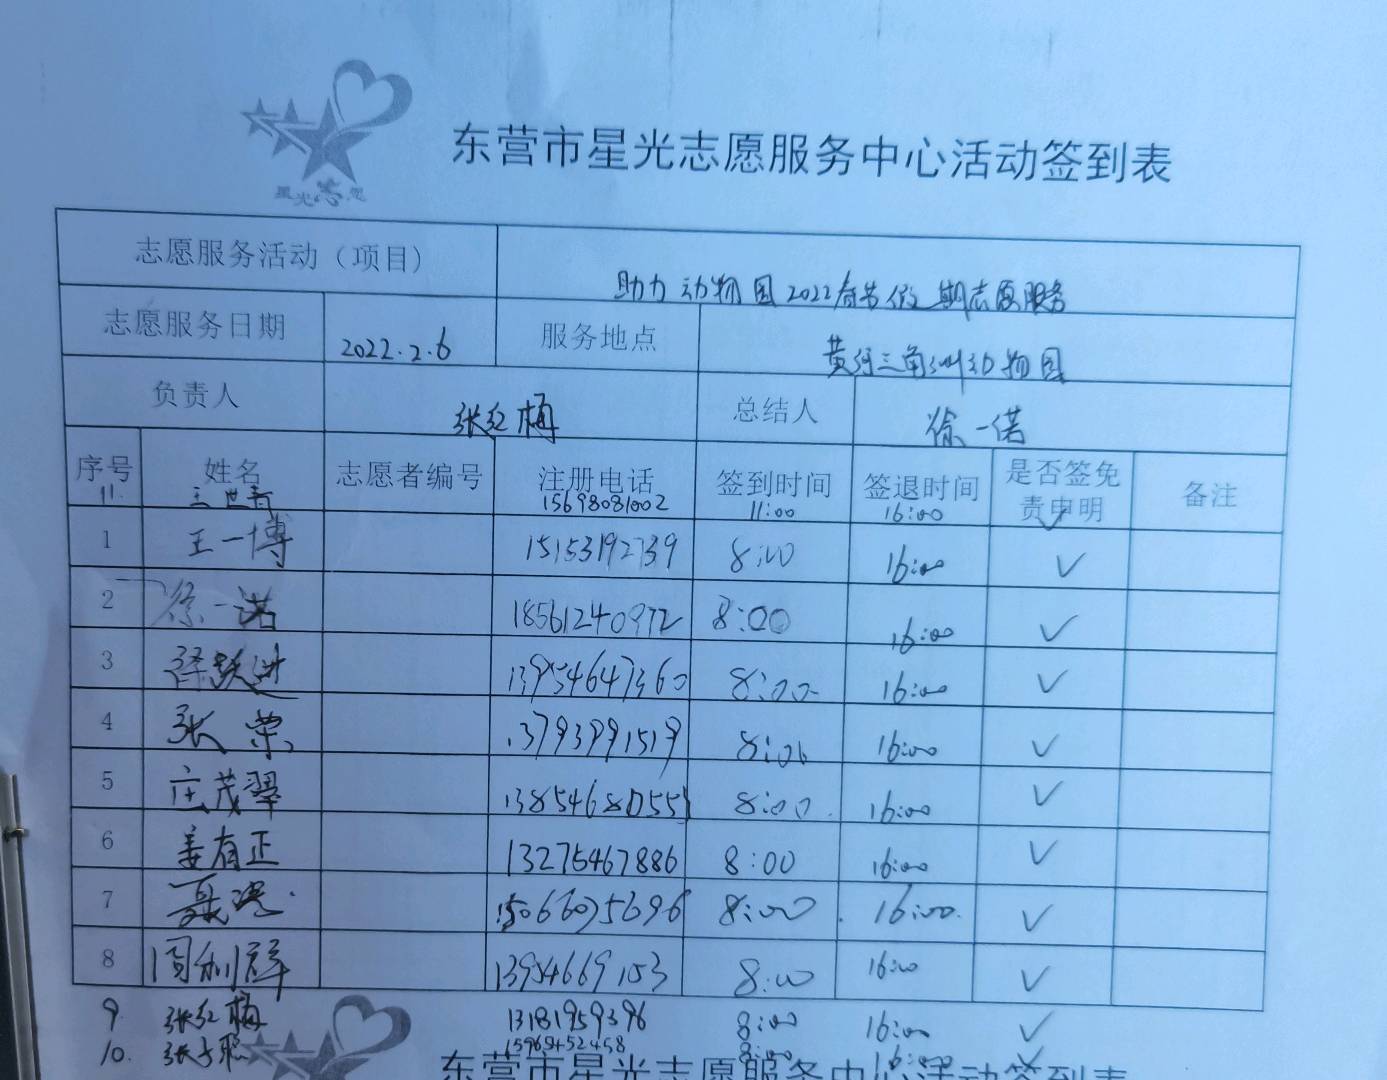 星光志愿
东营市星光志愿服务中心活动签到表
志愿服务活动（项目） 助力动物园2022春节假期志愿服务
志愿服务日期 2022.2.6 服务地点 黄河三角洲动物园
负责人 张红梅 总结人 徐一诺
序号 姓名 志愿者编号 注册电话 签到时间 签退时间 是否签免责申明 备注
11. 王世 15698081002 11:00 16:00 ✓
1 王一博 15153192739 8:00 16:00 ✓
2 徐一诺 18561240972 8:00 16:00 ✓
3 13954647360 8:00 16:00 ✓
4 张荣 13793991519 8:00 16:00 ✓
5 庄茂翠 8:00 16:00 ✓
6 姜有正 13275467886 8:00 16:00 ✓
7 15066075696 8:00 16:00 ✓
8 周利祥 13954669153 8:00 16:00 ✓
9 张红梅 13181959396 8:00 16:00 ✓
10. 15965452458 8:00 16:00 ✓
东营市星光志愿服务中心活动签到表